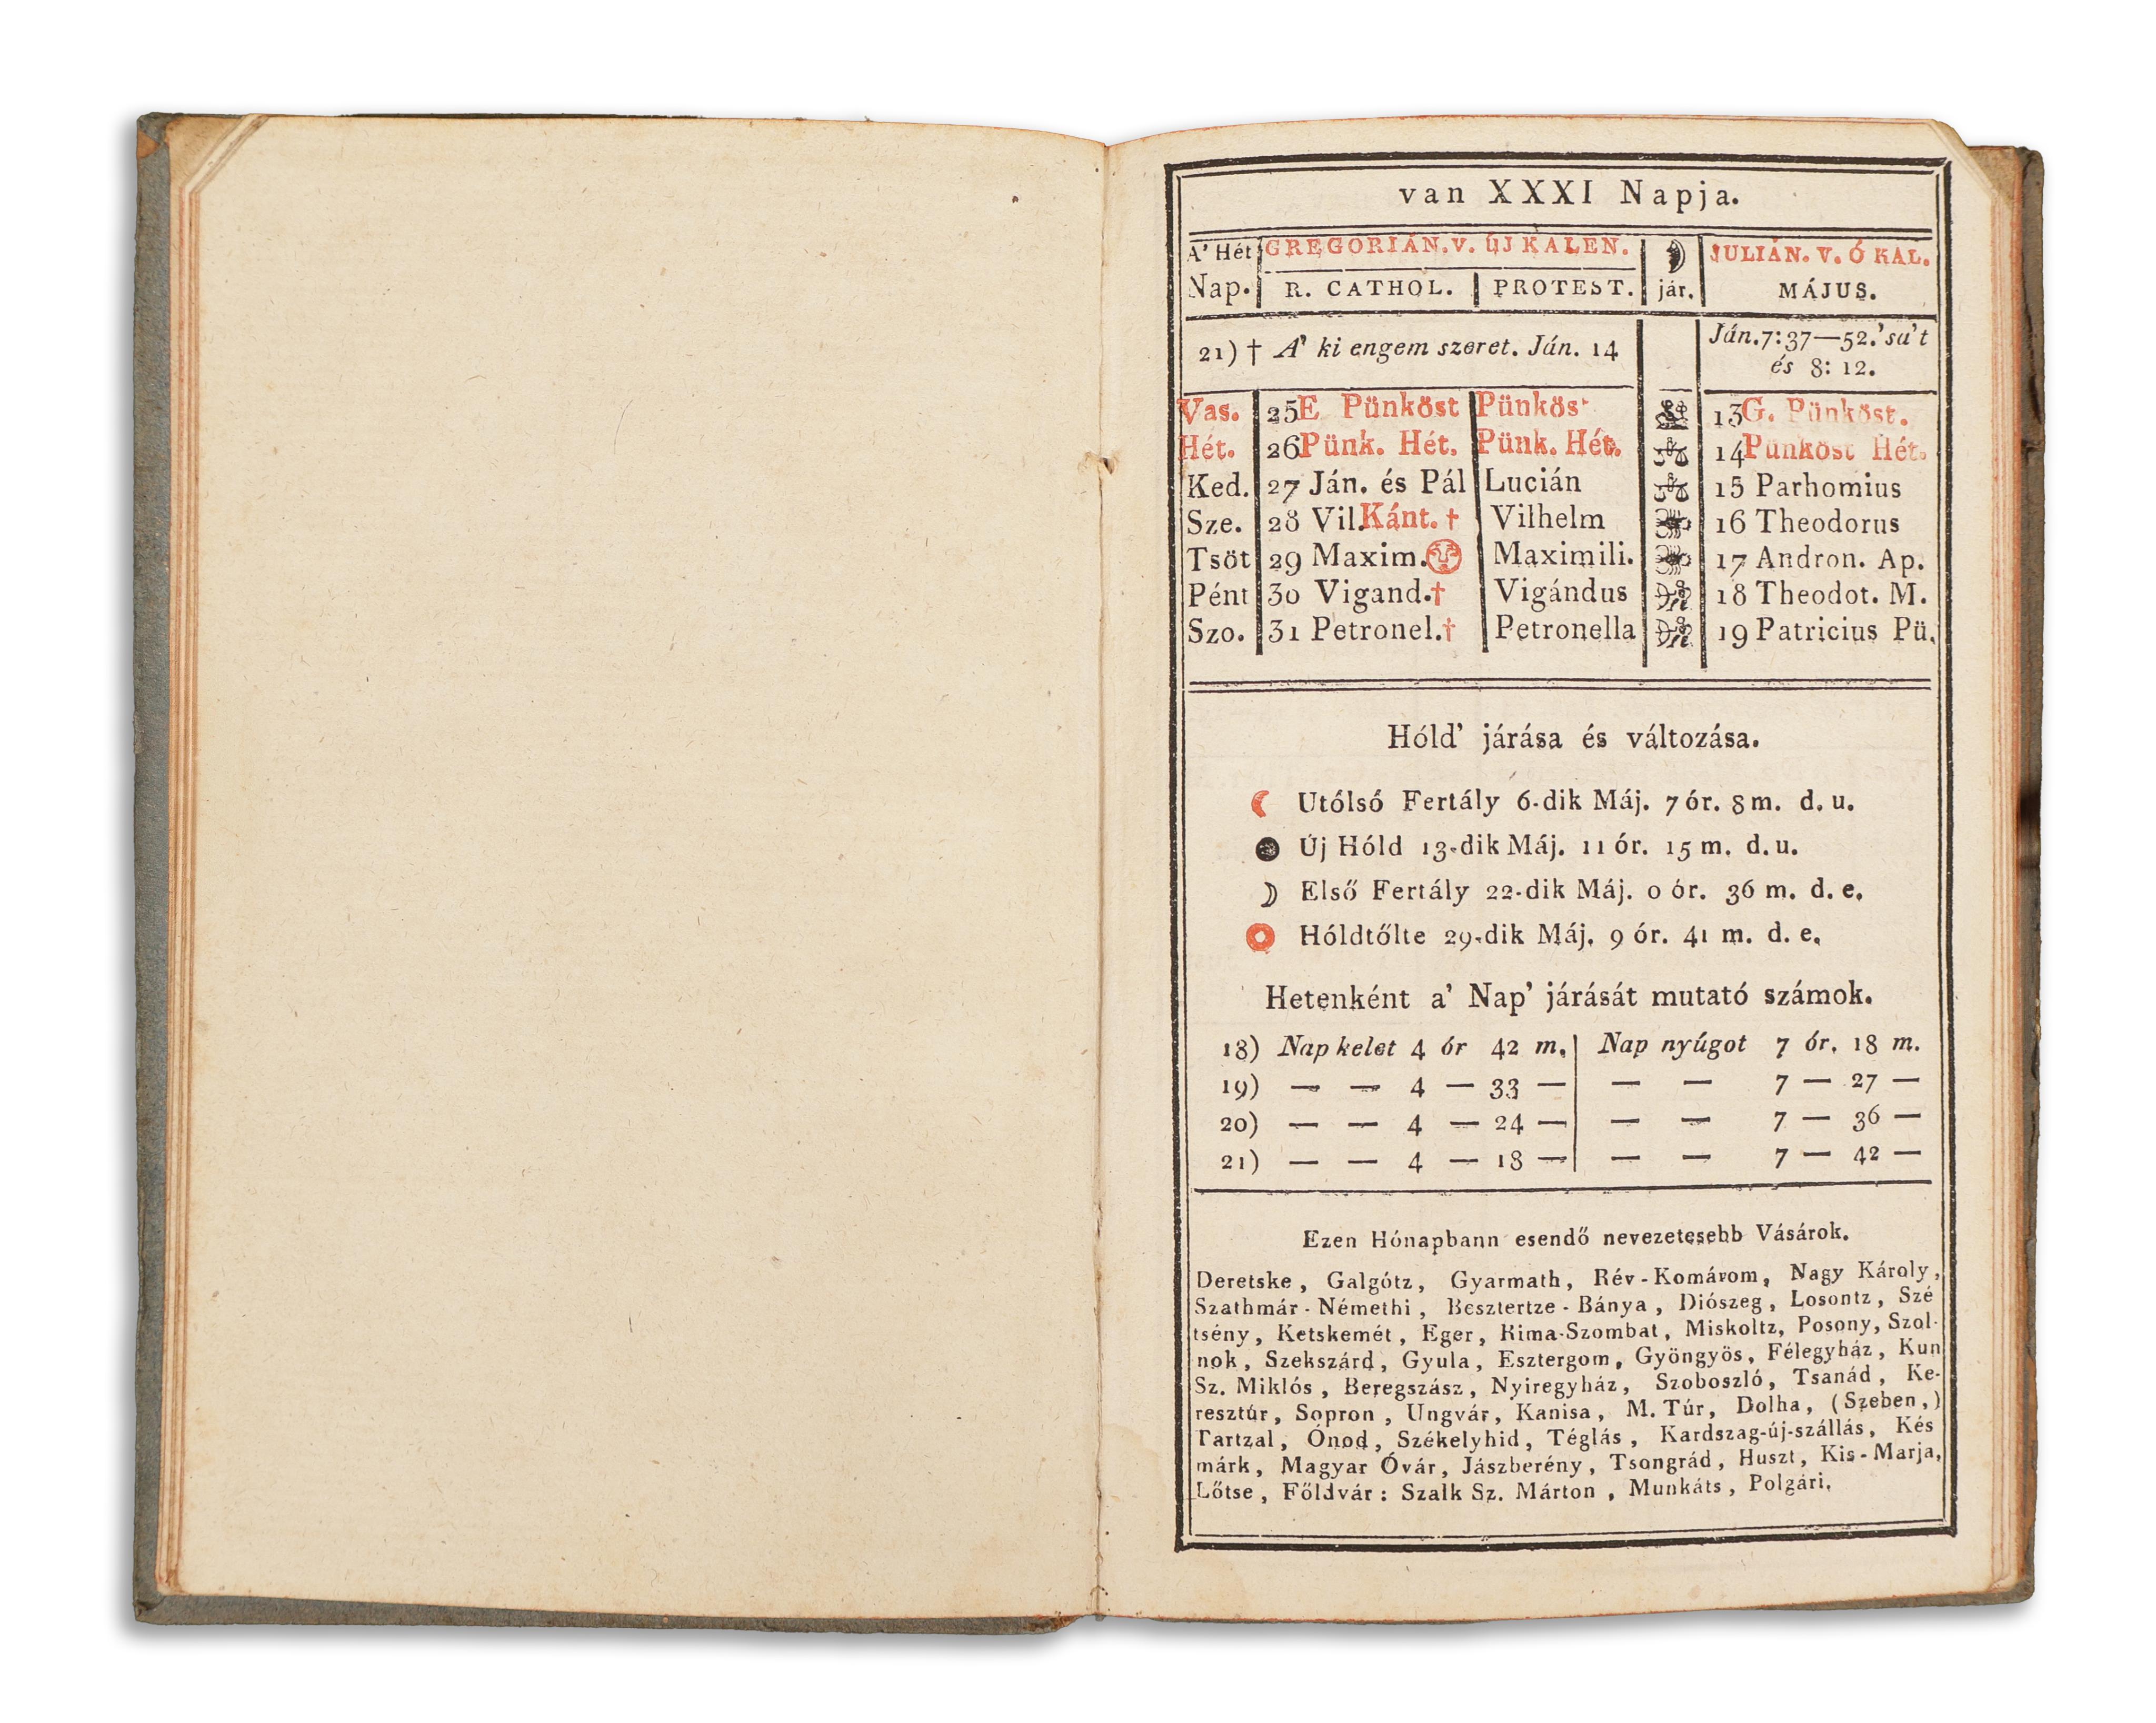 van XXXI Napja.
A' Hét GREGORIÁN. V. ÚJ KALEN. JULIÁN. V. Ó KAL.
Nap. R. CATHOL. PROTEST. jár. MÁJUS.
21) † A' ki engem szeret. Ján. 14 Ján. 7: 37—52. 'sa't
és 8: 12.
Vas. 25 E Pünköst Pünkös 13 G. Pünköst.
Hét. 26 Pünk. Hét. Pünk. Hét. 14 Pünköst Hét.
Ked. 27 Ján. és Pál Lucián 15 Parhomius
Sze. 28 Vil. Kánt. † Vilhelm 16 Theodorus
Tsöt 29 Maxim. Maximili. 17 Andron. Ap.
Pént 30 Vigand. † Vigándus 18 Theodot. M.
Szo. 31 Petronel. † Petronella 19 Patricius Pü.
Hóld' járása és változása.
Utólsó Fertály 6-dik Máj. 7 ór. 8 m. d. u.
Új Hóld 13-dik Máj. 11 ór. 15 m. d. u.
Első Fertály 22-dik Máj. 0 ór. 36 m. d. e.
Hóldtőlte 29-dik Máj. 9 ór. 41 m. d. e.
Hetenként a' Nap' járását mutató számok.
18) Nap kelet 4 ór 42 m. Nap nyúgot 7 ór. 18 m.
19) — — 4 — 33 — — — 7 — 27 —
20) — — 4 — 24 — — — 7 — 36 —
21) — — 4 — 18 — — — 7 — 42 —
Ezen Hónapbann esendő nevezetesebb Vásárok.
Deretske, Galgótz, Gyarmath, Rév-Komárom, Nagy Károly,
Szathmár-Némethi, Besztertze-Bánya, Diószeg, Losontz, Szé
tsény, Ketskemét, Eger, Rima-Szombat, Miskoltz, Posony, Szol-
nok, Szekszárd, Gyula, Esztergom, Gyöngyös, Félegyház, Kun
Sz. Miklós, Beregszász, Nyiregyház, Szoboszló, Tsanád, Ke-
resztúr, Sopron, Ungvár, Kanisa, M. Túr, Dolha, (Szeben,)
Tartzal, Ónod, Székelyhid, Téglás, Kardszag-új-szállás, Kés
márk, Magyar Óvár, Jászberény, Tsongrád, Huszt, Kis-Marja,
Lőtse, Főldvár: Szalk Sz. Márton, Munkáts, Polgári.